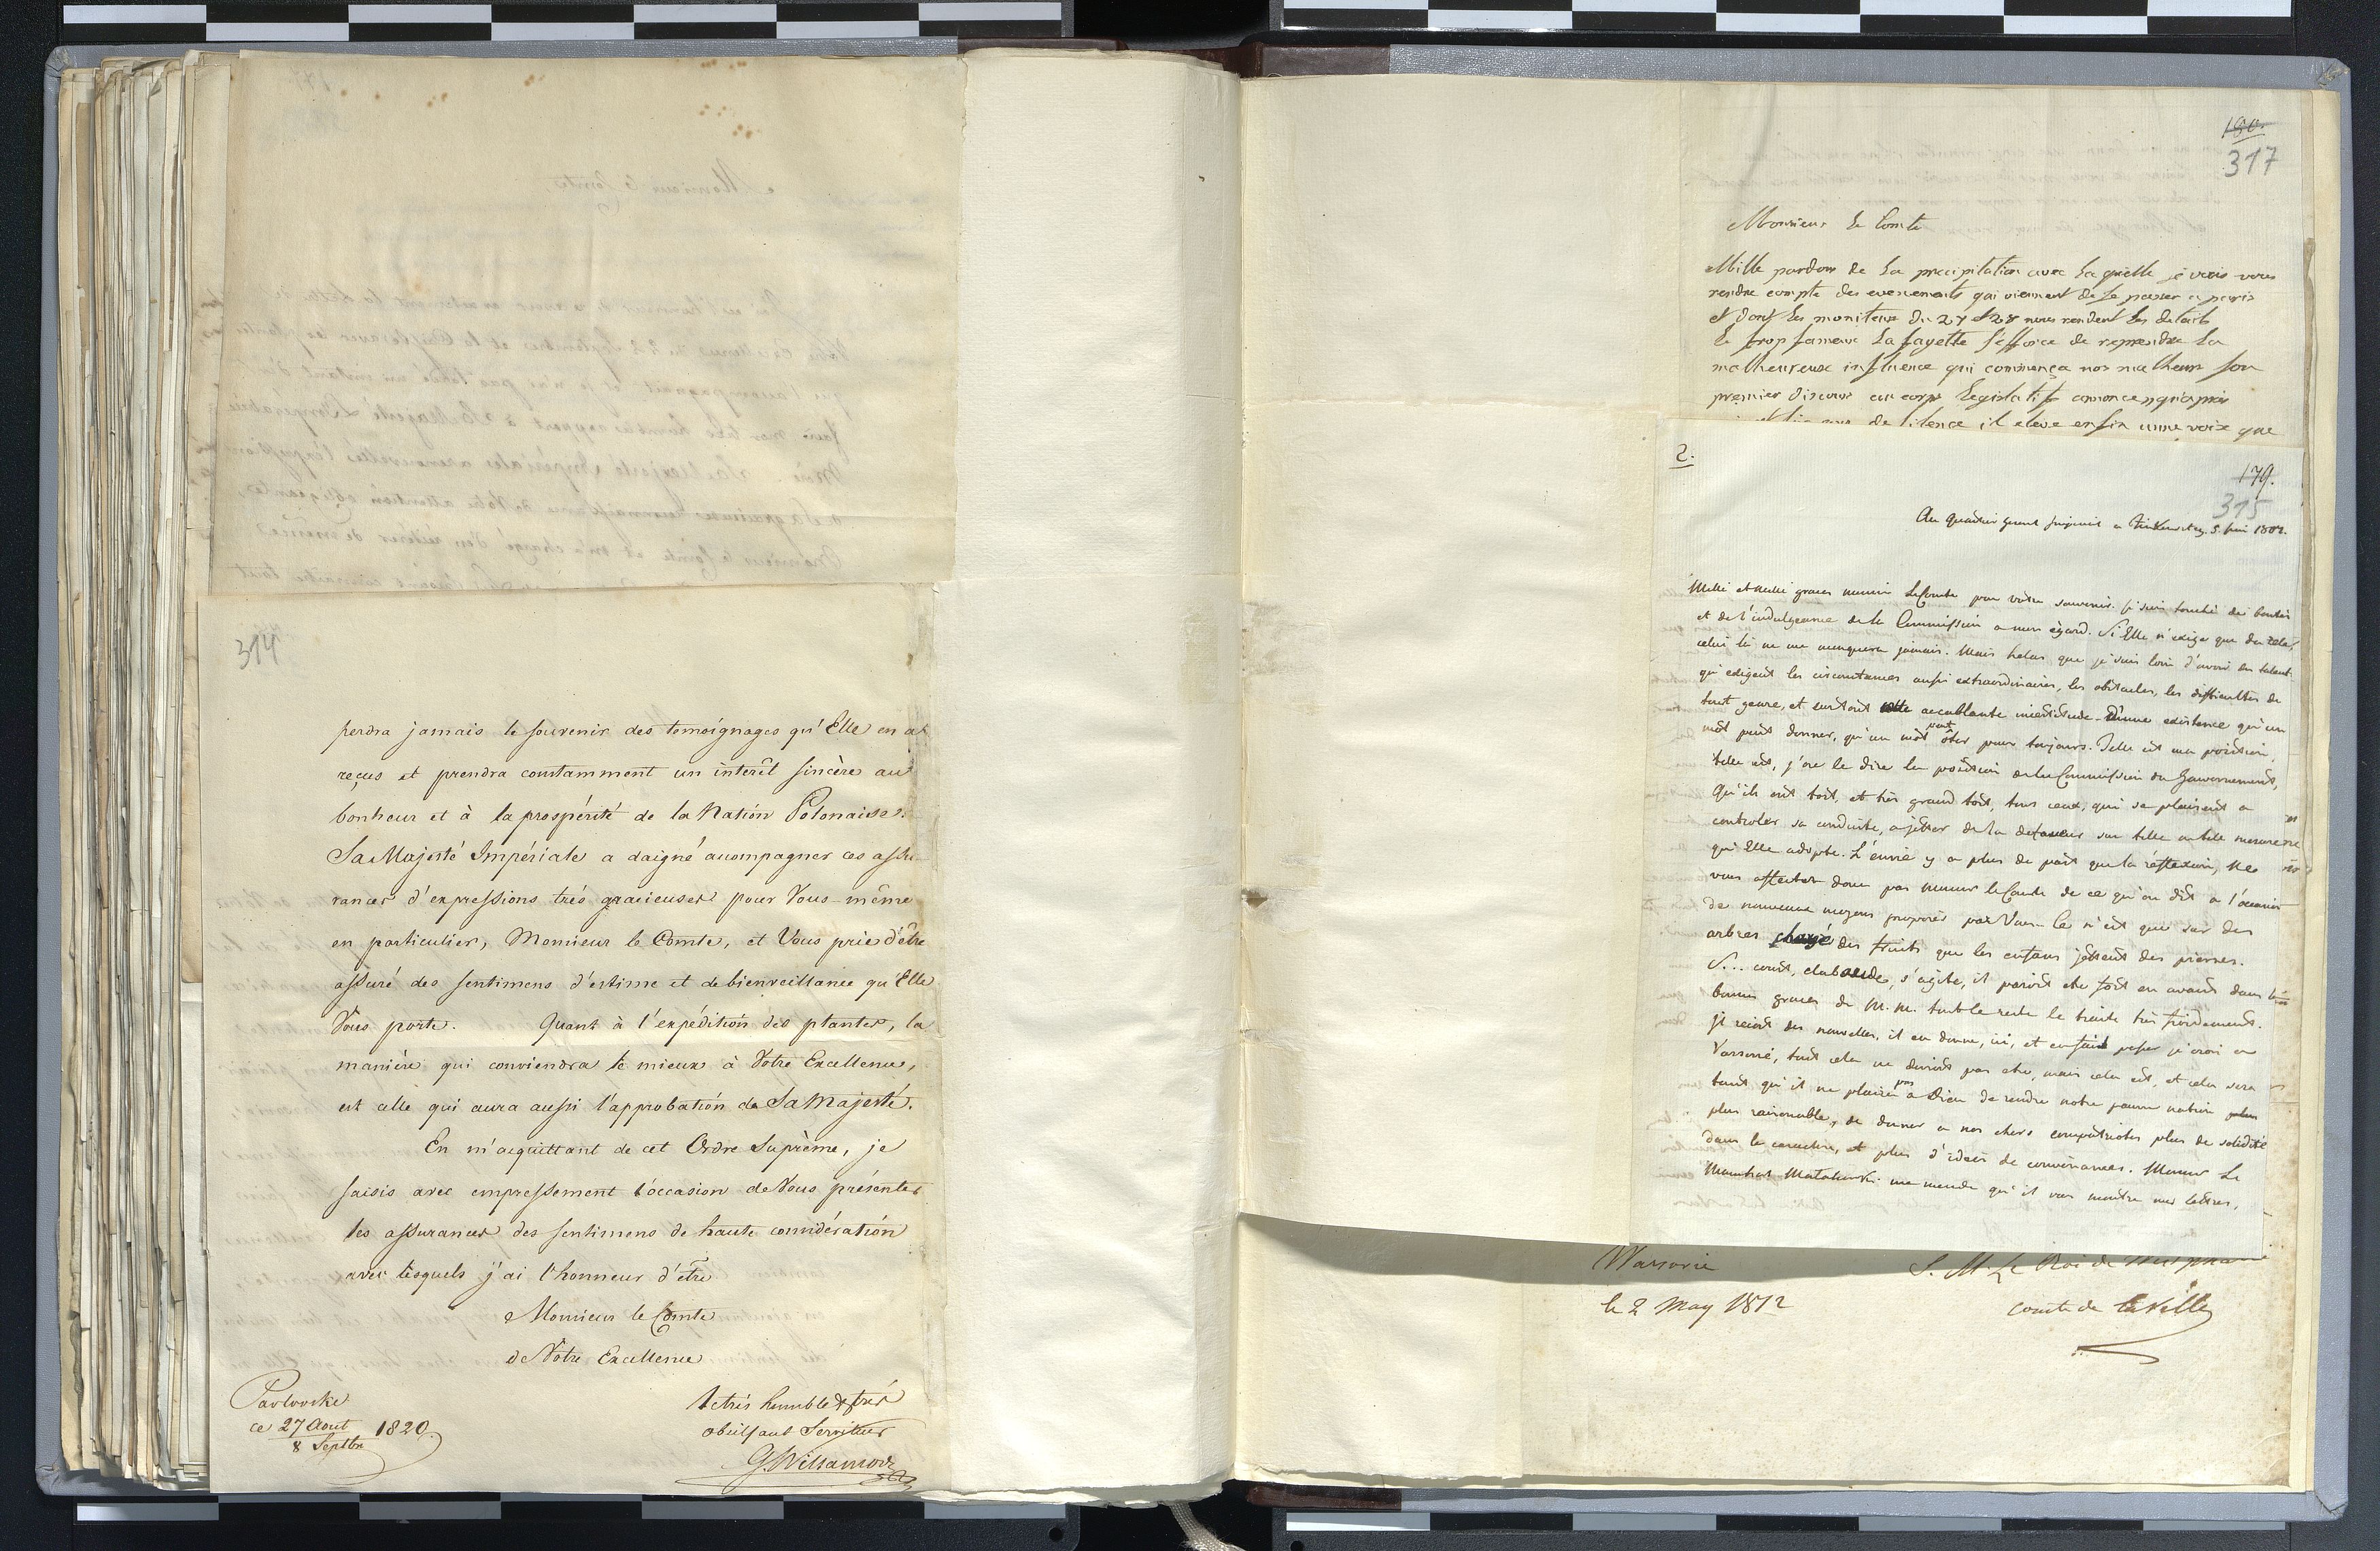 314
perdra jamais le souvenir des temoignages qu'Elle en a
reçus et prendra constamment un interêt sincère au
bonheur et à la prospérité de la Nation Polonaise.
Sa Majesté Impériale a daigné accompagner ces assu-
rances d'expressions très gracieuses pour Vous-même
en particulier, Monsieur le Comte, et Vous prie d'être
assuré des sentimens d'estime et de bienveillance qu'Elle
Vous porte. Quant à l'expédition des plantes, la
manière qui conviendra le mieux à Votre Excellence,
est celle qui aura aussi l'approbation de Sa Majesté.
En m'acquittant de cet Ordre Suprème, je
saisis avec empressement l'occasion de Vous présenter
les assurances des sentimens de haute considération
avec lesquels j'ai l'honneur d'être
Monsieur le Comte
de Votre Excellence
le très humble & très
obéissant Serviteur
G. Willamov
Pavlovski
ce 27 Aout 1820
8 Septbr
180.
317
Monsieur le Comte
Mille pardons de la precipitation avec laquelle je vais vous
rendre compte des evenements qui viennent de se passer a paris
et dont les moniteurs du 27 et 28 nous rendent les details
le trop fameux La fayette s'efforce de reprendre la
malheureuse influence qui commença nos malheurs son
premier discours au corps legislatif annonce qu'apres
de silence il eleve enfin une voix que
2.
179.
315
Au Quartier 5 1812.
Mille et mille graces Monsieur le Comte pour votre souvenir. je suis touché des bontés
et de l'indulgence de la Commission a mon egard. Si Elle n'exige que du zele,
celui là ne me manquera jamais. Mais helas que je suis loin d'avoir les talents
qu'exigent les circonstances aussi extraordinaires, les obstacles, les difficultés de
tout genre, et surtout cette accablante incertitude d'une existence qu'un
mot peut donner, qu'un mot peut ôter pour toujours. Telle est ma position,
telle est, j'ose le dire la position de la Commission du Gouvernement,
Qu'ils ont tort, et très grand tort, tous ceux, qui se plaisent a
controler sa conduite, a jetter de la defaveur sur telle ou telle mesure
qu'Elle adopte. L'envie y a plus de part que la réflexion, Ne
vous affectez donc pas Monsieur le Comte de ce qu'on dit a l'occasion
de nouveaux moyens proposés par Vous. Ce n'est que sur des
arbres chargé des fruits que les enfans jettent des pierres.
S... court, clabaude, s'agite, il paroit etre fort en avant dans les
bonnes graces de M. M. tout le reste le traite très froidement.
Il reçoit des nouvelles, il en donne, ici, et en fait passer je crois a
Varsovie, tout cela ne devroit pas etre, mais cela est, et cela sera
tant qu'il ne plaira pas a Dieu de rendre notre pauvre nation plus
plus raisonnable, de donner a nos chers compatriotes plus de solidité
dans le caractere, et plus d'idées de convenances. Monsieur Le
me mande qu'il vous montre mes lettres,
Warsovie
le 2 May 1812
S. M. Le Roi de
comte de